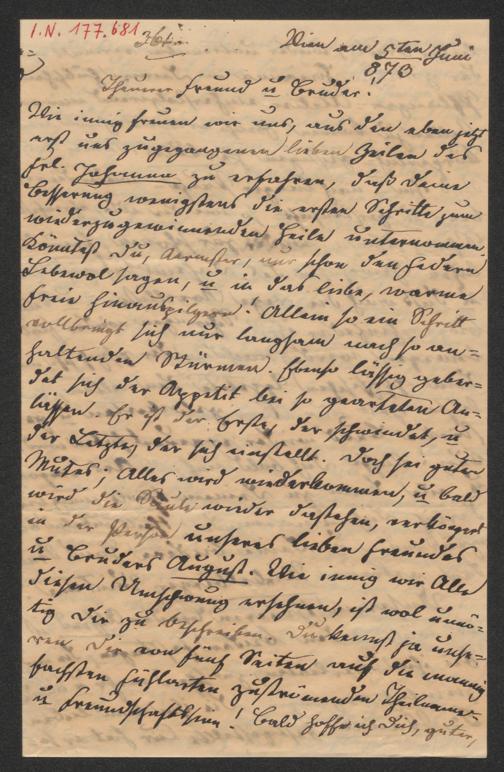 I.N. 177.681
Wien am 5ten Juni
873
Theurer Freund u Bruder!
Wie innig freuen wir uns, aus den eben jetzt
erst uns zugegangenen lieben Zeilen des
Frl. Johanna zu erfahren, daß deine
Besserung wenigstens die ersten Schritte zum
wiederzugewinnenden Heile unternommen.
Könntest du, Aermster, nur schon den Federn
Lebewol sagen, u in das liebe, warme
Freie hinauspilgern! Allein so ein Schritt
vollbringt sich nur langsam nach so an-
haltenden Stürmen. Ebenso lässig geber-
det sich der Appetit bei so gearteten An-
lässen. Er ist der Erste, der schwindet, u
der Letzte, der sich einstellt. Doch sei guten
Mutes; Alles wird wiederkommen, u bald
wird die Säule wieder dastehen, verkörpert
in der Person unseres lieben Freundes
u Bruders August. Wie innig wir Alle
diesen Umschwung ersehnen, ist wol unnö-
tig dir zu beschreiben. Du kennst ja unse-
ren dir von fünf Seiten auf die mannig
fachsten Fühlarten zuströmenden Theilname-
u Freundschaftssinn! Bald hoffe ich dich, guter,